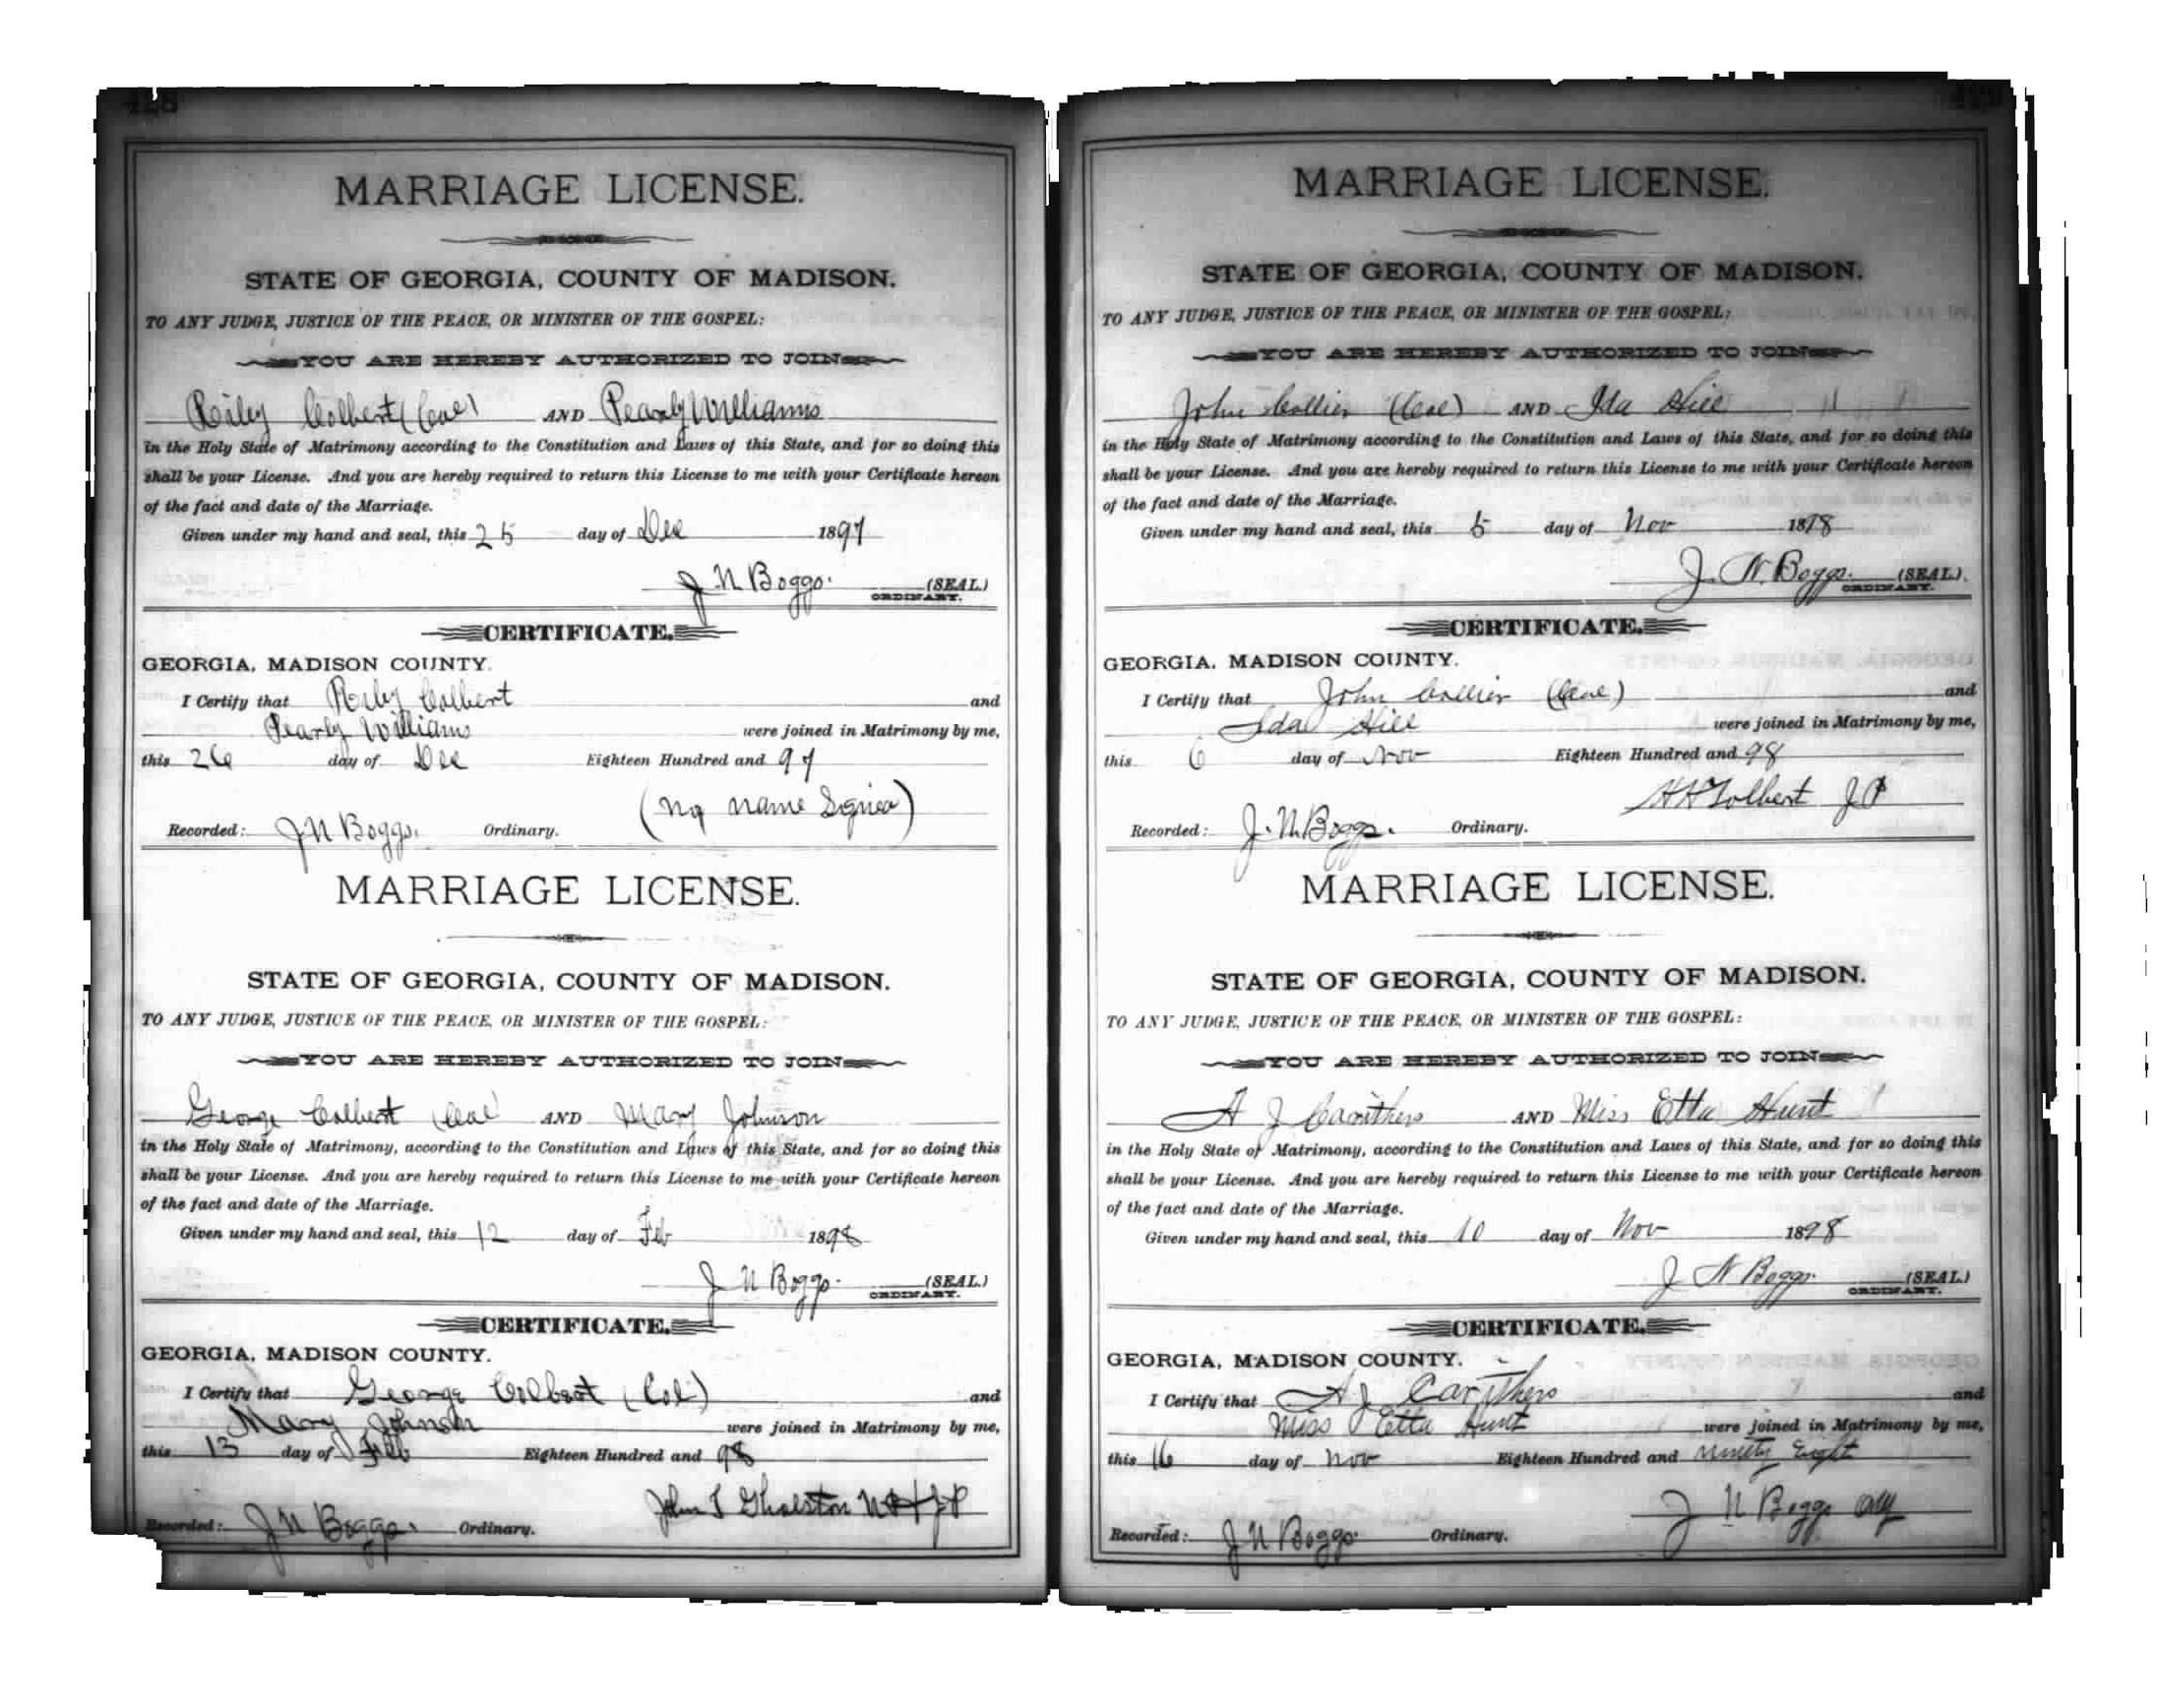 128
MARRIAGE LICENSE.
STATE OF GEORGIA, COUNTY OF MADISON.
TO ANY JUDGE, JUSTICE OF THE PEACE, OR MINISTER OF THE GOSPEL:
YOU ARE HEREBY AUTHORIZED TO JOIN
Riley Colbert (Col) AND Pearly Williams
in the Holy State of Matrimony according to the Constitution and Laws of this State, and for so doing this
shall be your License. And you are hereby required to return this License to me with your Certificate hereon
of the fact and date of the Marriage.
Given under my hand and seal, this 25 day of Dec 1897
J N Boggs. (SEAL.)
ORDINARY.
CERTIFICATE.
GEORGIA, MADISON COUNTY.
I Certify that Riley Colbert and
Pearly Williams were joined in Matrimony by me,
this 26 day of Dec Eighteen Hundred and 97
(No name Signed)
Recorded: J N Boggs. Ordinary.
MARRIAGE LICENSE.
STATE OF GEORGIA, COUNTY OF MADISON.
TO ANY JUDGE, JUSTICE OF THE PEACE, OR MINISTER OF THE GOSPEL:
YOU ARE HEREBY AUTHORIZED TO JOIN
George Colbert (Col) AND Mary Johnson
in the Holy State of Matrimony, according to the Constitution and Laws of this State, and for so doing this
shall be your License. And you are hereby required to return this License to me with your Certificate hereon
of the fact and date of the Marriage.
Given under my hand and seal, this 12 day of Feb 1898
J N Boggs. (SEAL.)
ORDINARY.
CERTIFICATE.
GEORGIA, MADISON COUNTY.
I Certify that George Colbert (Col) and
Mary Johnson were joined in Matrimony by me,
this 13 day of Feb Eighteen Hundred and 98
John T Gholston N P & J P
Recorded: J N Boggs. Ordinary.
MARRIAGE LICENSE.
STATE OF GEORGIA, COUNTY OF MADISON.
TO ANY JUDGE, JUSTICE OF THE PEACE, OR MINISTER OF THE GOSPEL:
YOU ARE HEREBY AUTHORIZED TO JOIN
John Collier (Col) AND Ida Hill
in the Holy State of Matrimony according to the Constitution and Laws of this State, and for so doing this
shall be your License. And you are hereby required to return this License to me with your Certificate hereon
of the fact and date of the Marriage.
Given under my hand and seal, this 5 day of Nov 1898
J. N. Boggs. (SEAL.)
ORDINARY.
CERTIFICATE.
GEORGIA, MADISON COUNTY.
I Certify that John Collier (Col) and
Ida Hill were joined in Matrimony by me,
this 6 day of Nov Eighteen Hundred and 98
Tolbert J P
Recorded: J. N. Boggs. Ordinary.
MARRIAGE LICENSE.
STATE OF GEORGIA, COUNTY OF MADISON.
TO ANY JUDGE, JUSTICE OF THE PEACE, OR MINISTER OF THE GOSPEL:
YOU ARE HEREBY AUTHORIZED TO JOIN
A J Carithers AND Miss Etta Hunt
in the Holy State of Matrimony, according to the Constitution and Laws of this State, and for so doing this
shall be your License. And you are hereby required to return this License to me with your Certificate hereon
of the fact and date of the Marriage.
Given under my hand and seal, this 10 day of Nov 1898
J N Boggs. (SEAL.)
ORDINARY.
CERTIFICATE.
GEORGIA, MADISON COUNTY.
I Certify that A J Carithers and
Miss Etta Hunt were joined in Matrimony by me,
this 16 day of Nov Eighteen Hundred and ninety Eight
J N Boggs Ory
Recorded: J N Boggs. Ordinary.